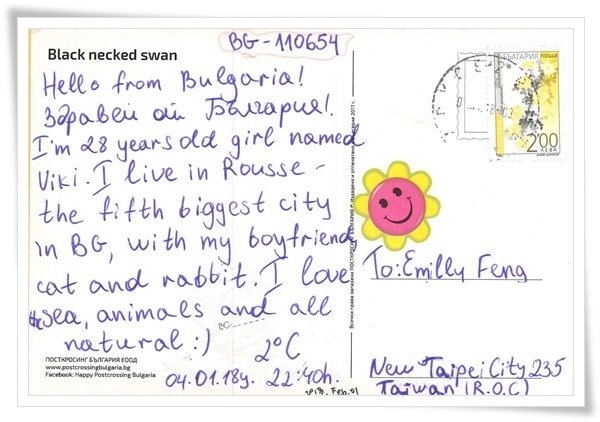 BG-110654
Black necked swan
Hello from Bulgaria!
Здравей от България!
I'm 28 years old girl named
Viki. I live in Rousse -
the fifth biggest city
in BG, with my boyfriend,
cat and rabbit. I love
the sea, animals and all
natural :)
2°C
04.01.18y. 22:40h.
ПОСТКРОСИНГ БЪЛГАРИЯ ЕООД
www.postcrossingbulgaria.bg
Facebook: Happy Postcrossing Bulgaria
Всички права запазени ПОСТКРОСИНГ БЪЛГАРИЯ ©, издадено и отпечатано
БЪЛГАРИЯ поща
2.00
ЛЕВА
To: Emilly Feng
New Taipei City 235
Taiwan (R.O.C)
Feb. 01